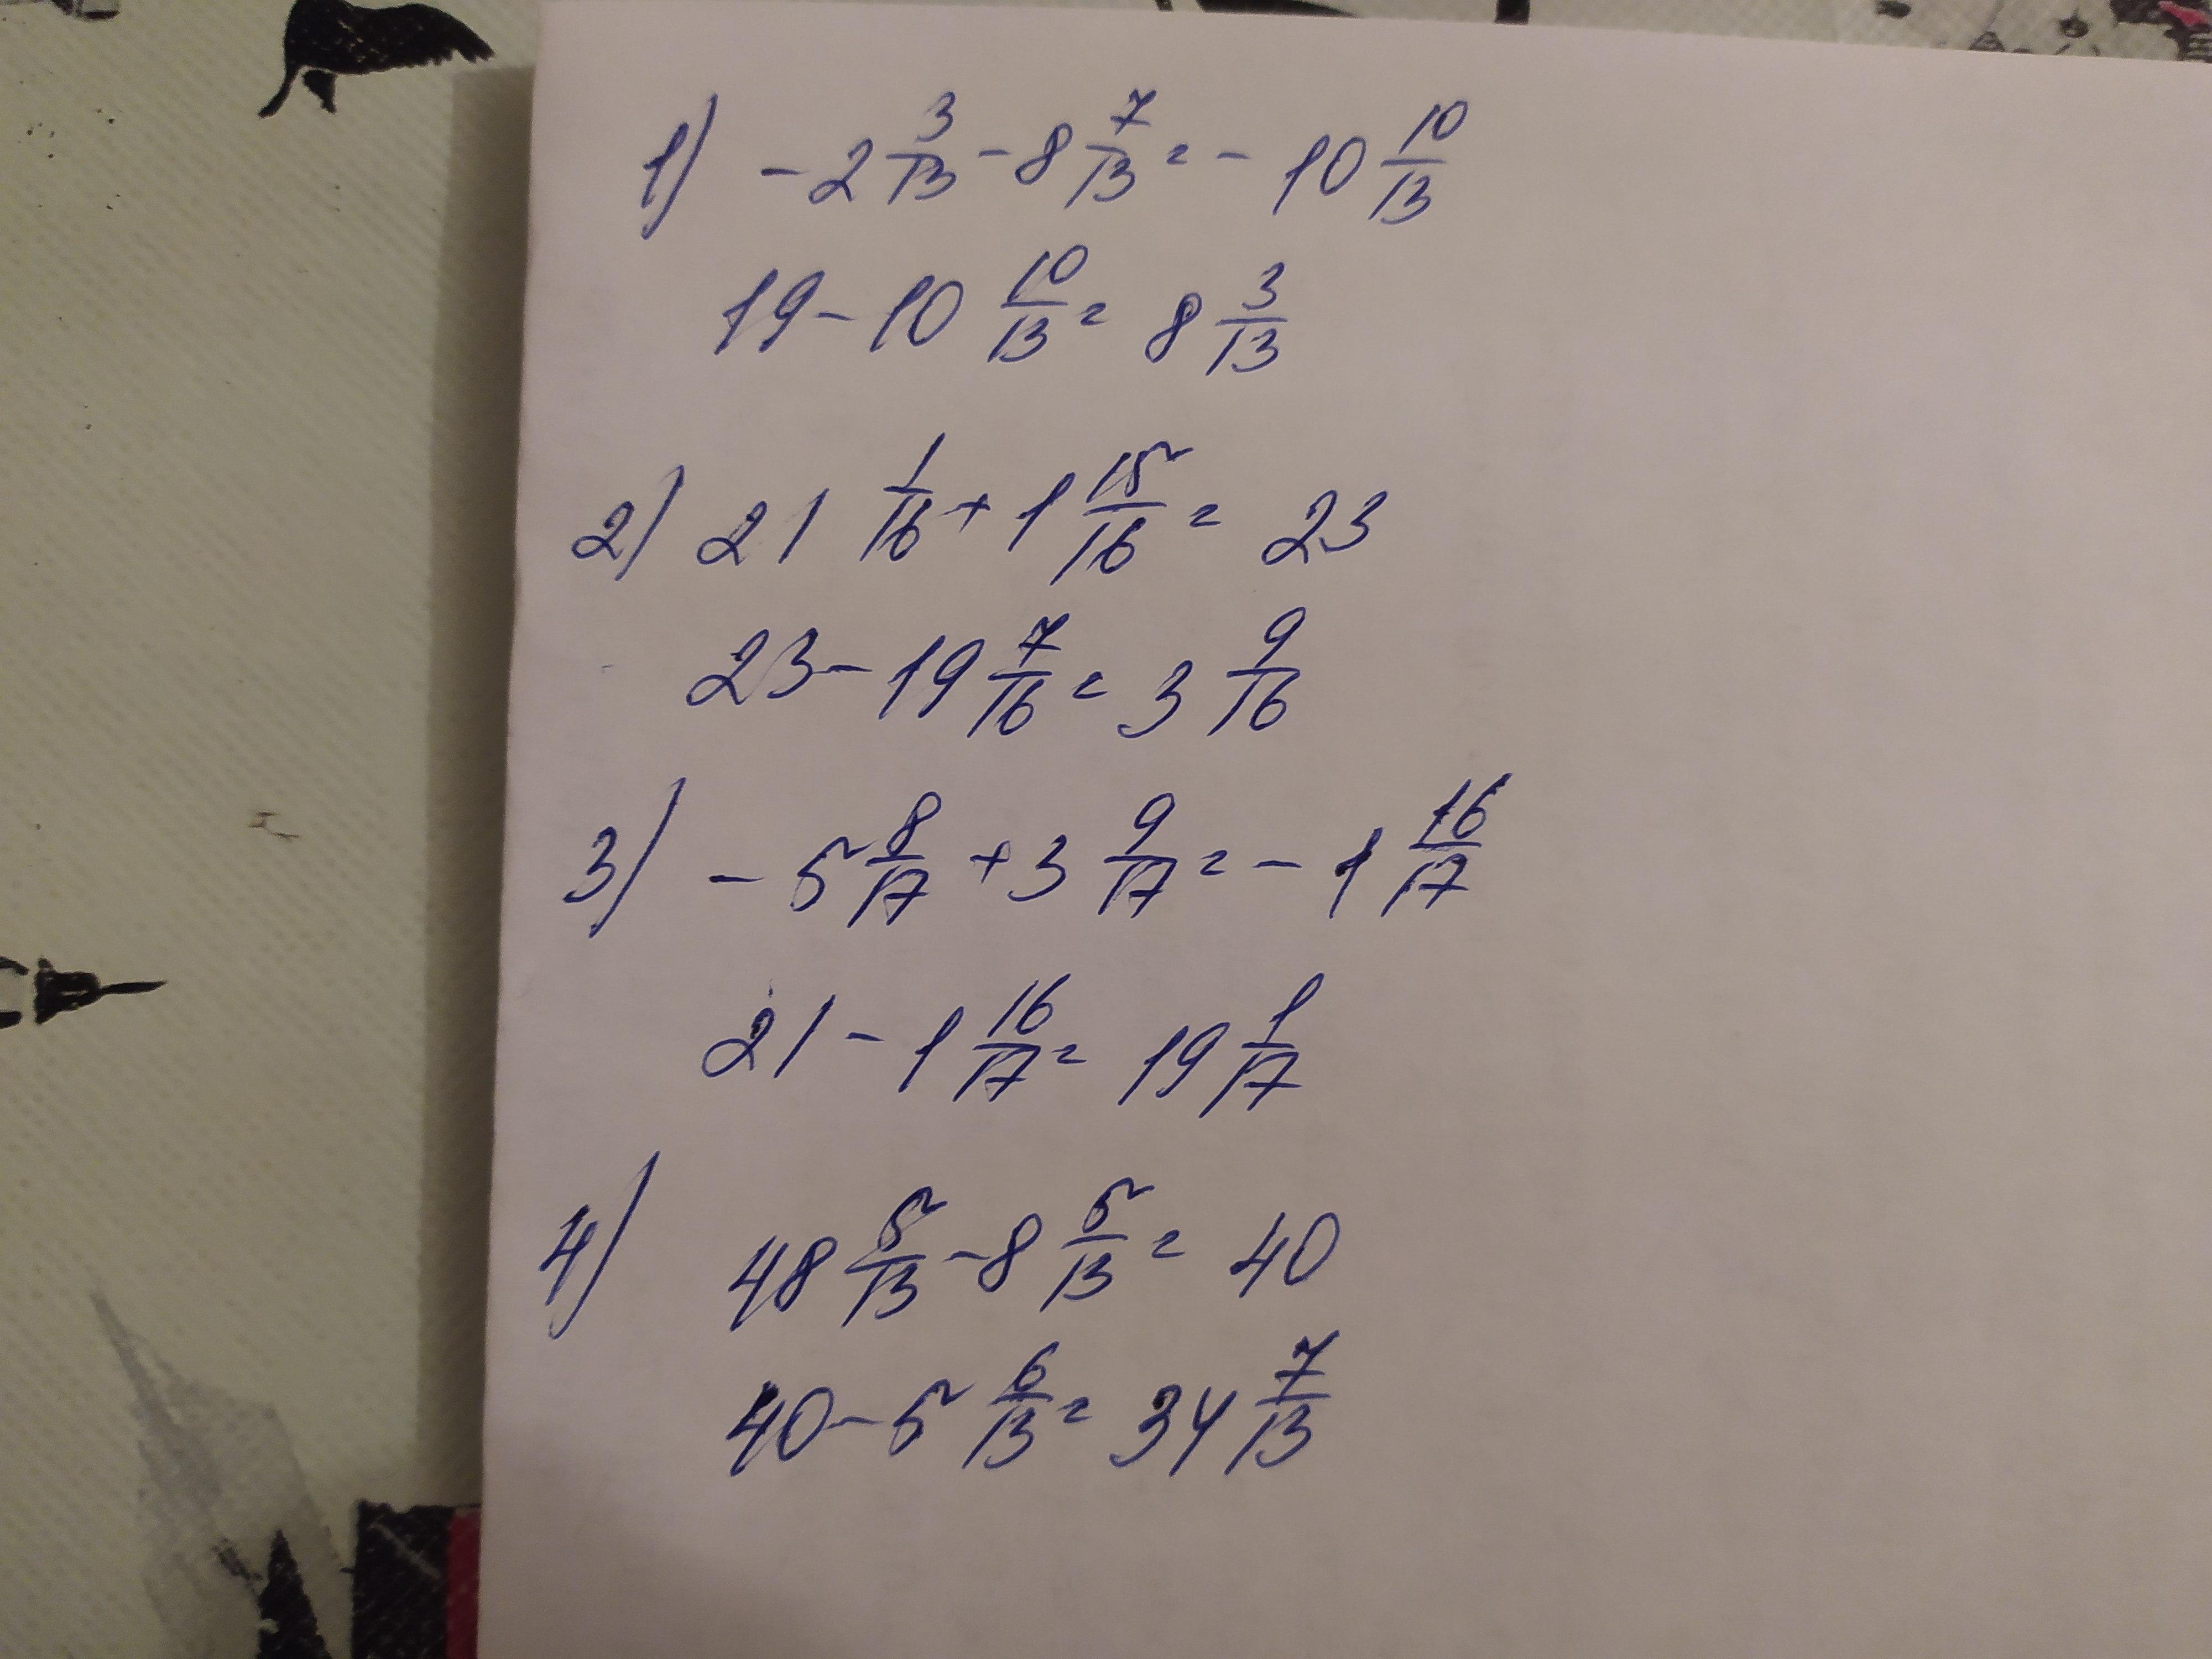 1) -2 3/13 - 8 7/13 = -10 10/13
19 - 10 10/13 = 8 3/13
2) 21 1/16 + 1 15/16 = 23
23 - 19 7/16 = 3 9/16
3) -5 8/17 + 3 9/17 = -1 16/17
21 - 1 16/17 = 19 1/17
4) 48 5/13 - 8 5/13 = 40
40 - 5 6/13 = 34 7/13